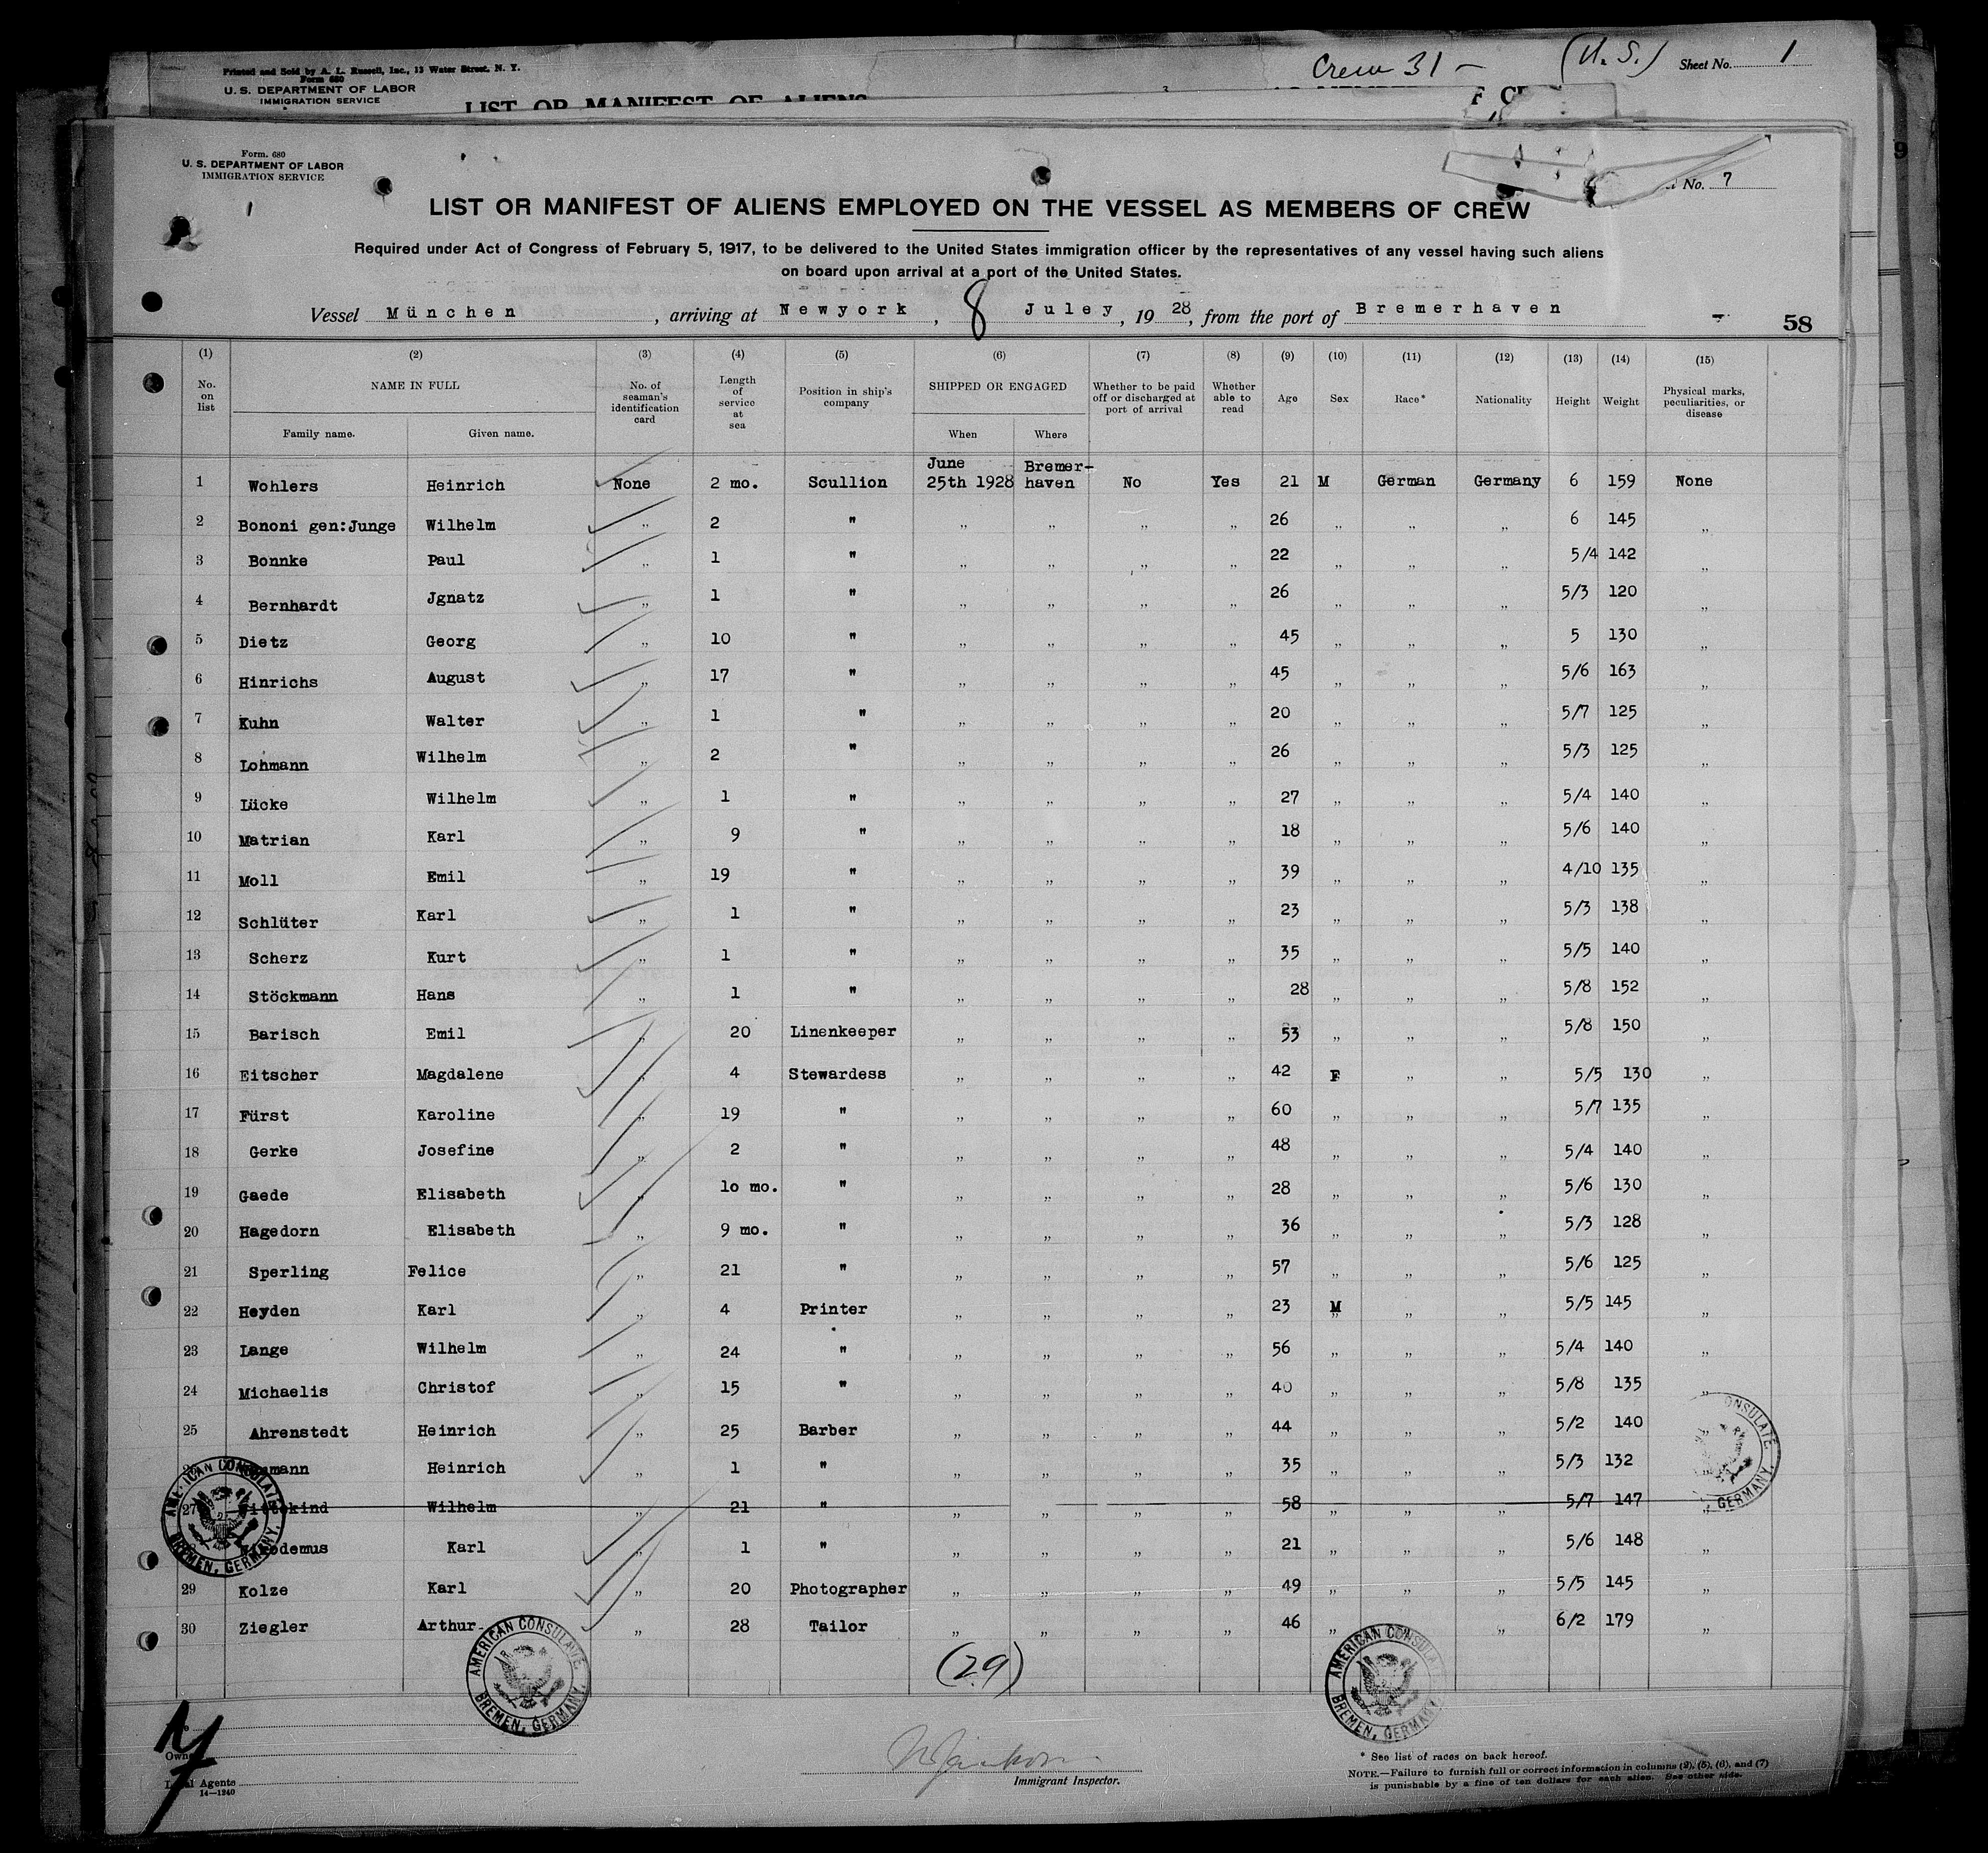 Printed and Sold by A. L. Russell, Inc., 13 Water Street, N. Y.
Form 680
U. S. DEPARTMENT OF LABOR
IMMIGRATION SERVICE
LIST OR MANIFEST OF ALIENS
F CR
Crew 31 - (U.S.) Sheet No. 1
Form. 680
U. S. DEPARTMENT OF LABOR
IMMIGRATION SERVICE
No. 7
LIST OR MANIFEST OF ALIENS EMPLOYED ON THE VESSEL AS MEMBERS OF CREW
Required under Act of Congress of February 5, 1917, to be delivered to the United States immigration officer by the representatives of any vessel having such aliens
on board upon arrival at a port of the United States.
Vessel München, arriving at Newyork, 8 Juley, 1928, from the port of Bremerhaven
58
(1) (2) (3) (4) (5) (6) (7) (8) (9) (10) (11) (12) (13) (14) (15)
No. on list NAME IN FULL Family name. Given name. No. of seaman's identification card Length of service at sea Position in ship's company SHIPPED OR ENGAGED When Where Whether to be paid off or discharged at port of arrival Whether able to read Age Sex Race* Nationality Height Weight Physical marks, peculiarities, or disease
1 Wohlers Heinrich None 2 mo. Scullion June 25th 1928 Bremer-haven No Yes 21 M German Germany 6 159 None
2 Bononi gen:Junge Wilhelm „ 2 " „ „ „ „ 26 „ „ „ 6 145 „
3 Bonnke Paul „ 1 " „ „ „ „ 22 „ „ „ 5/4 142 „
4 Bernhardt Jgnatz „ 1 " „ „ „ „ 26 „ „ „ 5/3 120 „
5 Dietz Georg „ 10 " „ „ „ „ 45 „ „ „ 5 130 „
6 Hinrichs August „ 17 " „ „ „ „ 45 „ „ „ 5/6 163 „
7 Kuhn Walter „ 1 " „ „ „ „ 20 „ „ „ 5/7 125 „
8 Lohmann Wilhelm „ 2 " „ „ „ „ 26 „ „ „ 5/3 125 „
9 Lücke Wilhelm „ 1 " „ „ „ „ 27 „ „ „ 5/4 140 „
10 Matrian Karl „ 9 " „ „ „ „ 18 „ „ „ 5/6 140 „
11 Moll Emil „ 19 " „ „ „ „ 39 „ „ „ 4/10 135 „
12 Schlüter Karl „ 1 " „ „ „ „ 23 „ „ „ 5/3 138 „
13 Scherz Kurt „ 1 " „ „ „ „ 35 „ „ „ 5/5 140 „
14 Stöckmann Hans „ 1 " „ „ „ „ 28 „ „ „ 5/8 152 „
15 Barisch Emil „ 20 Linenkeeper „ „ „ „ 53 „ „ „ 5/8 150 „
16 Eitscher Magdalene „ 4 Stewardess „ „ „ „ 42 F „ „ 5/5 130 „
17 Fürst Karoline „ 19 " „ „ „ „ 60 „ „ „ 5/7 135 „
18 Gerke Josefine „ 2 " „ „ „ „ 48 „ „ „ 5/4 140 „
19 Gaede Elisabeth „ 1o mo. " „ „ „ „ 28 „ „ „ 5/6 130 „
20 Hagedorn Elisabeth „ 9 mo. " „ „ „ „ 36 „ „ „ 5/3 128 „
21 Sperling Felice „ 21 " „ „ „ „ 57 „ „ „ 5/6 125 „
22 Heyden Karl „ 4 Printer „ „ „ „ 23 M „ „ 5/5 145 „
23 Lange Wilhelm „ 24 " „ „ „ „ 56 „ „ „ 5/4 140 „
24 Michaelis Christof „ 15 " „ „ „ „ 40 „ „ „ 5/8 135 „
25 Ahrenstedt Heinrich „ 25 Barber „ „ „ „ 44 „ „ „ 5/2 140 „
Heinrich „ 1 " „ „ „ „ 35 „ „ „ 5/3 132 „
27 Wilhelm „ 21 " „ „ „ „ 58 „ „ „ 5/7 147 „
Karl „ 1 " „ „ „ „ 21 „ „ „ 5/6 148 „
29 Kolze Karl „ 20 Photographer „ „ „ „ 49 „ „ „ 5/5 145 „
30 Ziegler Arthur „ 28 Tailor „ „ „ „ 46 „ „ „ 6/2 179 „
(29)
AMERICAN CONSULATE, BREMEN, GERMANY.
AMERICAN CONSULATE, BREMEN, GERMANY.
AMERICAN CONSULATE, BREMEN, GERMANY.
CONSULATE, GERMANY.
Agents
14—1240
Immigrant Inspector.
* See list of races on back hereof.
NOTE.—Failure to furnish full or correct information in columns (2), (5), (6), and (7)
is punishable by a fine of ten dollars for each alien. See other side.